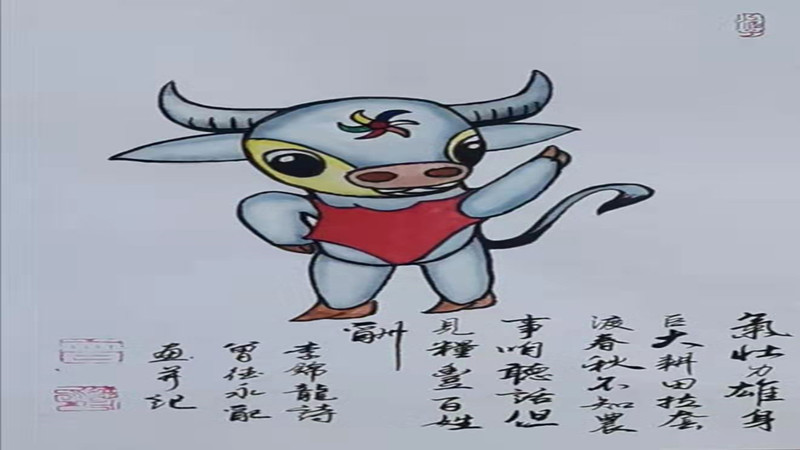 氣壯力雄身
巨大耕田拉套
渡春秋不知農
事咱聽話但
見糧豐百姓
酬
李錦龍詩
曾永配
画并記